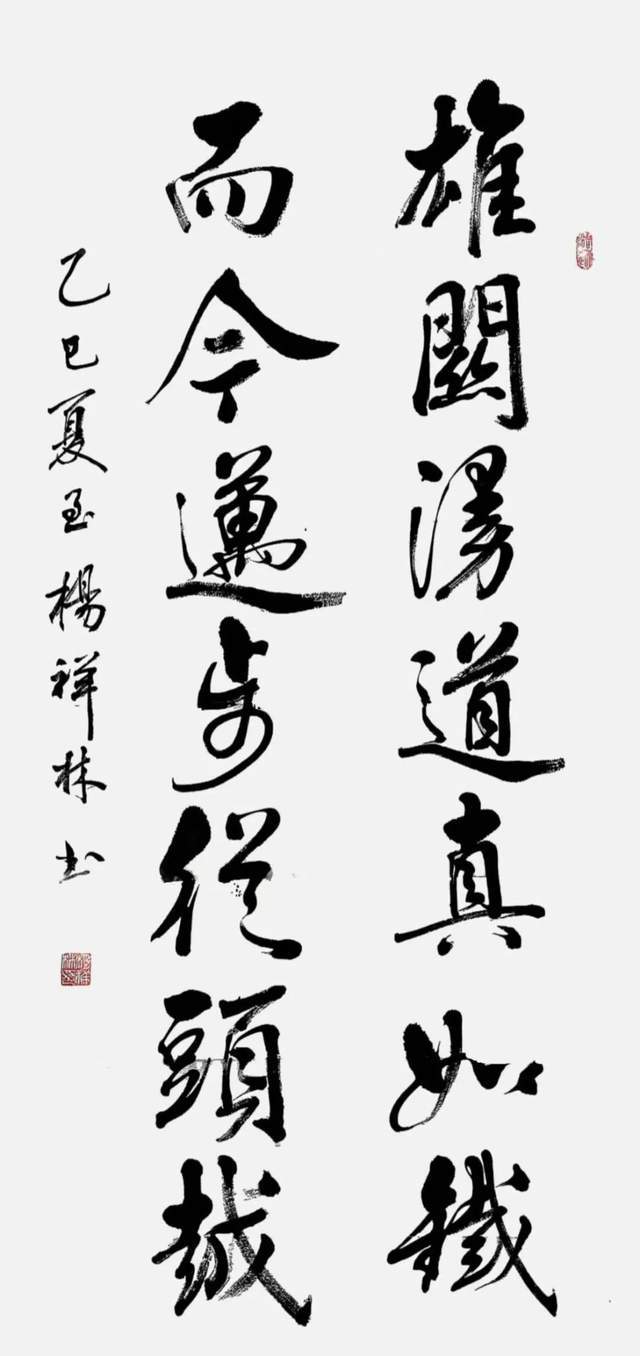 雄關漫道真如鐵
而今邁步從頭越
乙巳夏至楊祥林书